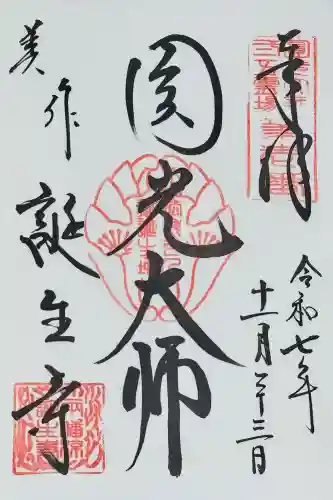 奉拝
令和七年
十一月二十三日
圓光大师
美作
誕生寺